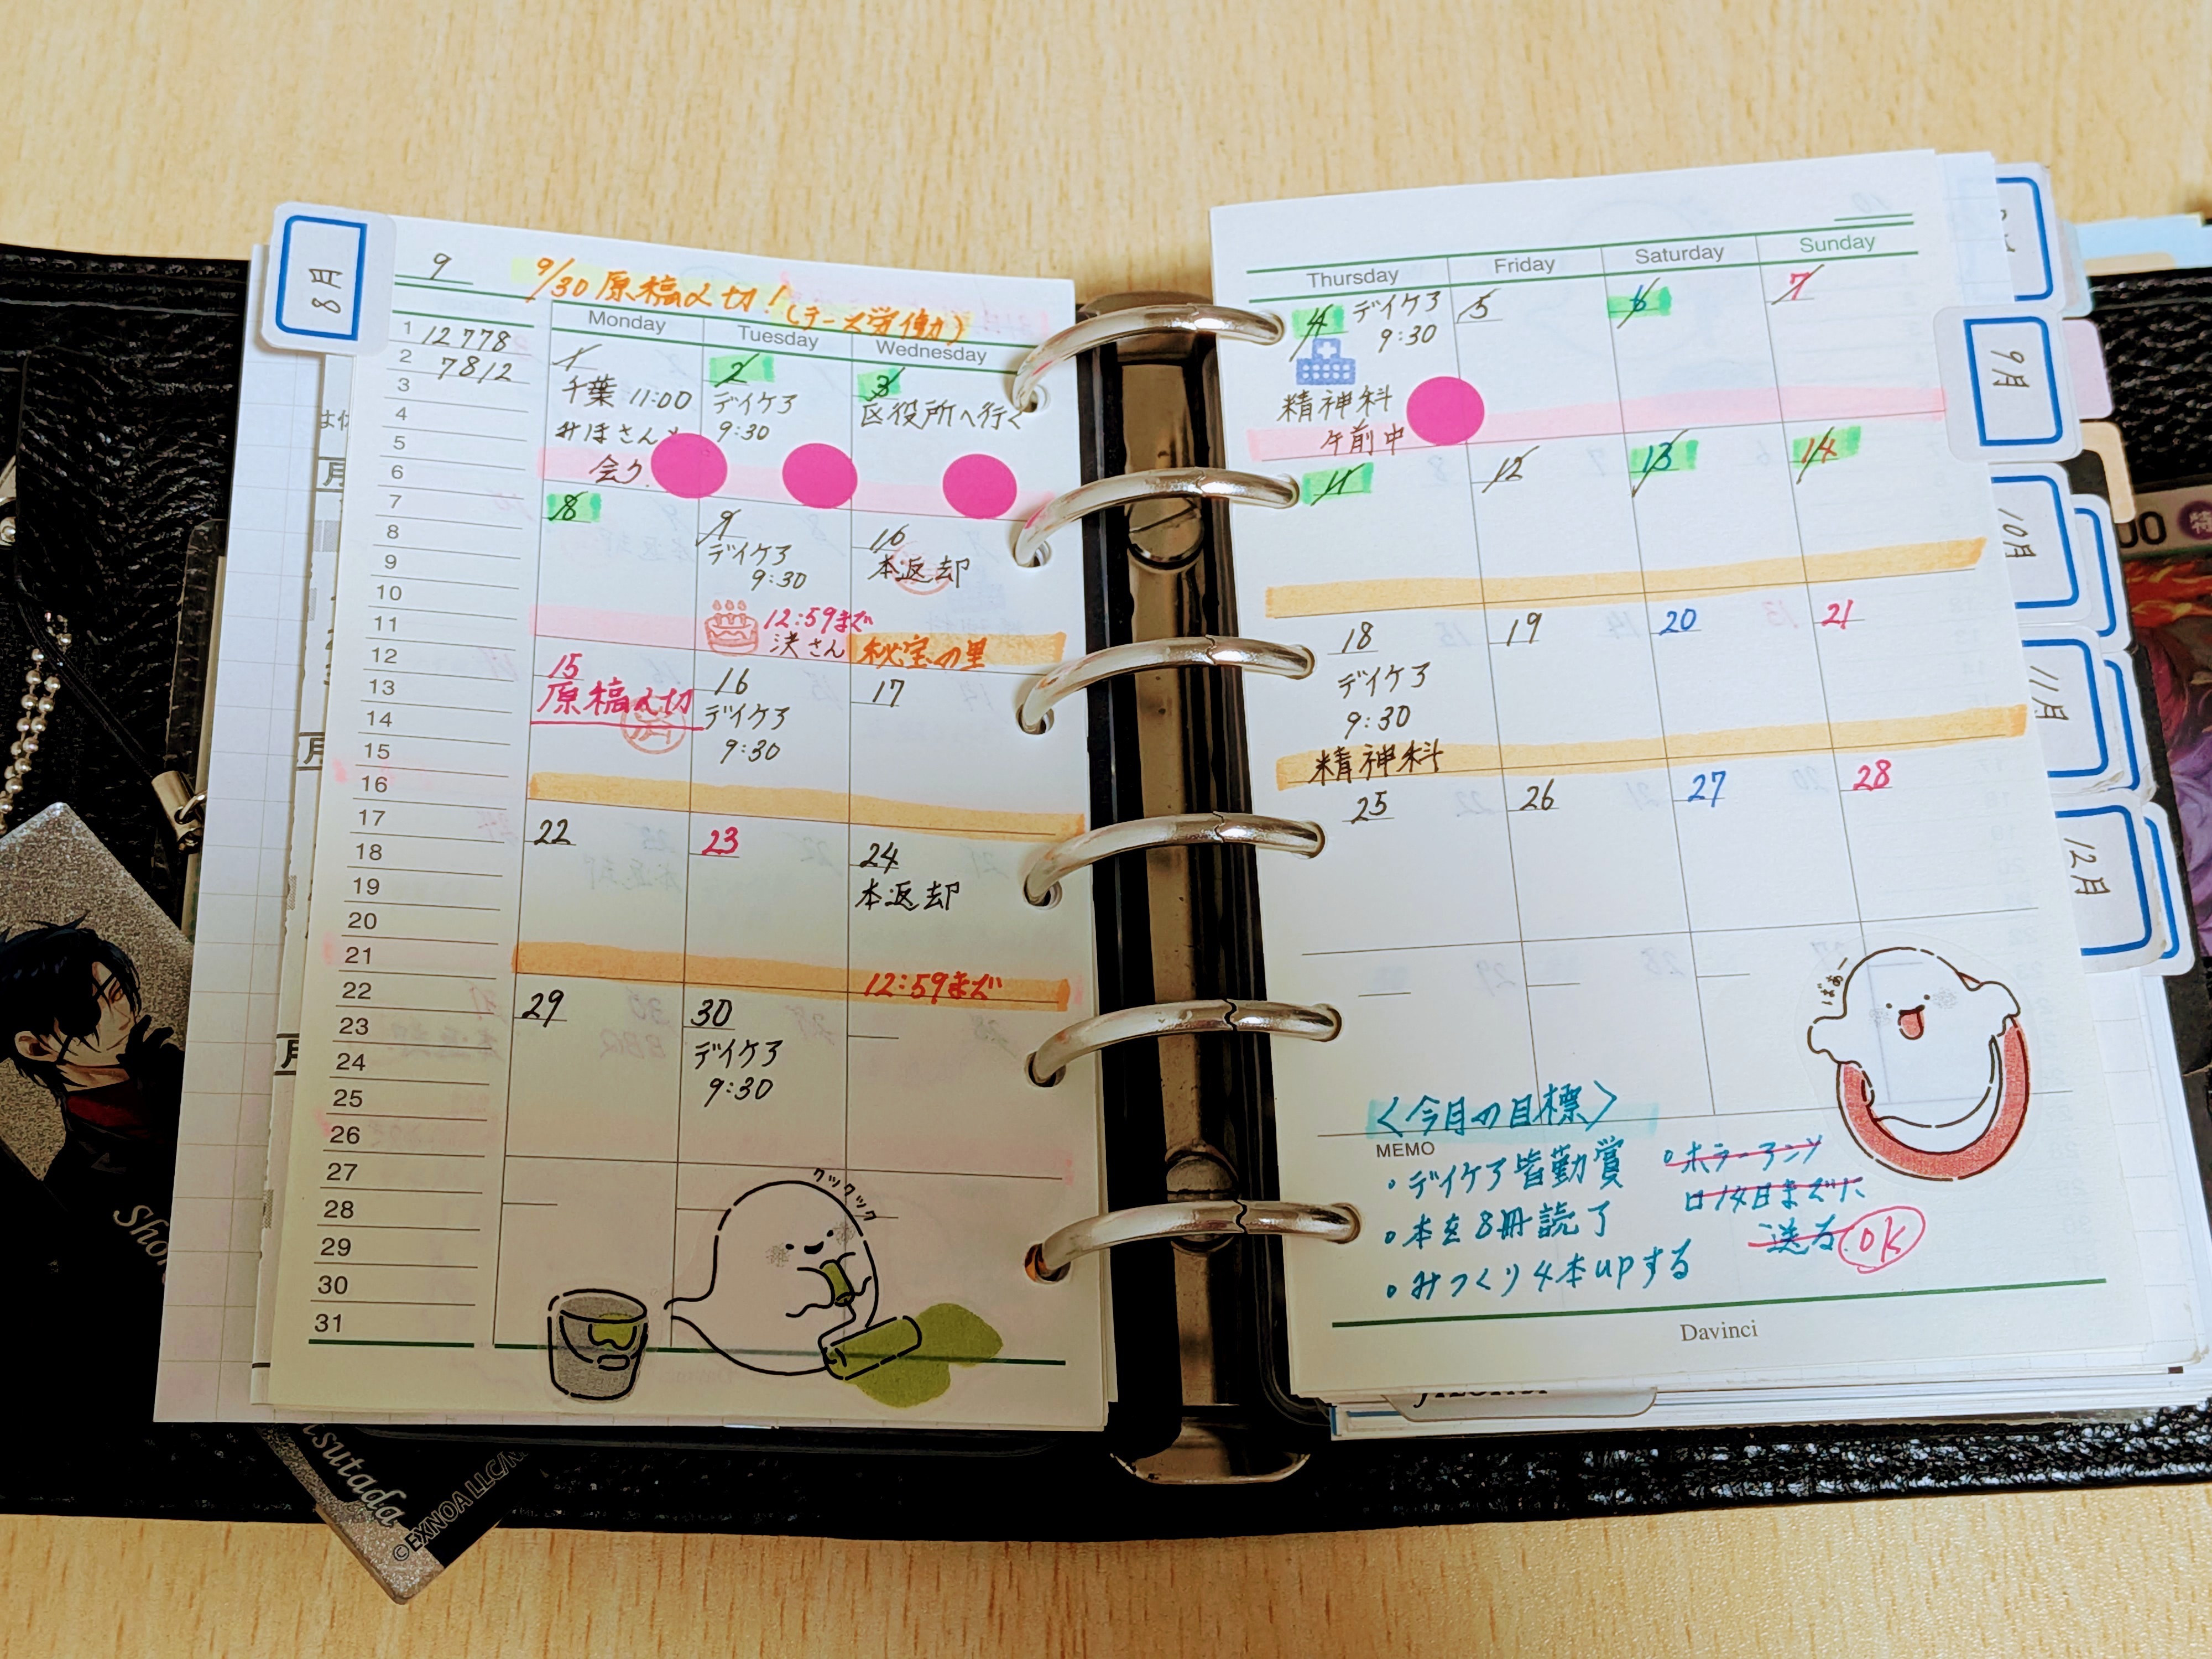 8月
9
9/30 原稿〆切!(テーマ労働)
Monday
Tuesday
Wednesday
1 12778
2 7812
3
4
5
6
7
8
9
10
11
12
13
14
15
16
17
18
19
20
21
22
23
24
25
26
27
28
29
30
31
1
千葉 11:00
みほさんと
会う.
2
デイケア
9:30
3
区役所へ行く
8
9
デイケア
9:30
12:59まで
決さん
10
本返却
秘宝の里
15
原稿〆切
済
16
デイケア
9:30
17
22
23
24
本返却
12:59まで
29
30
デイケア
9:30
クックックッ
Thursday
Friday
Saturday
Sunday
4 デイケア
9:30
精神科
午前中
5
6
7
11
12
13
14
18
デイケア
9:30
精神科
19
20
21
25
26
27
28
ばぁー
<今月の目標>
MEMO
・デイケア皆勤賞
・本を8冊読了
・みつくり4本upする
・ホラーアンソ
ロ14日までに
送る.OK
Davinci
9月
10月
11月
12月
Sho
isutada
©EXNOA LLC/N